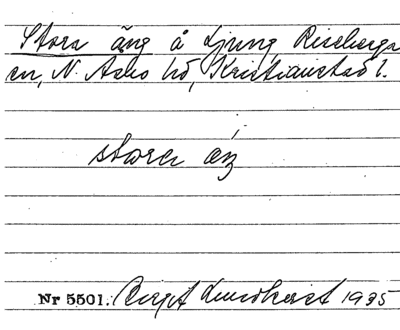 Stora äng å Ljung Riseberga
sn, N. Åsbo hd, Kristianstad l.
stora áŋ
Nr 5501. Birgit Lundkvist 1935